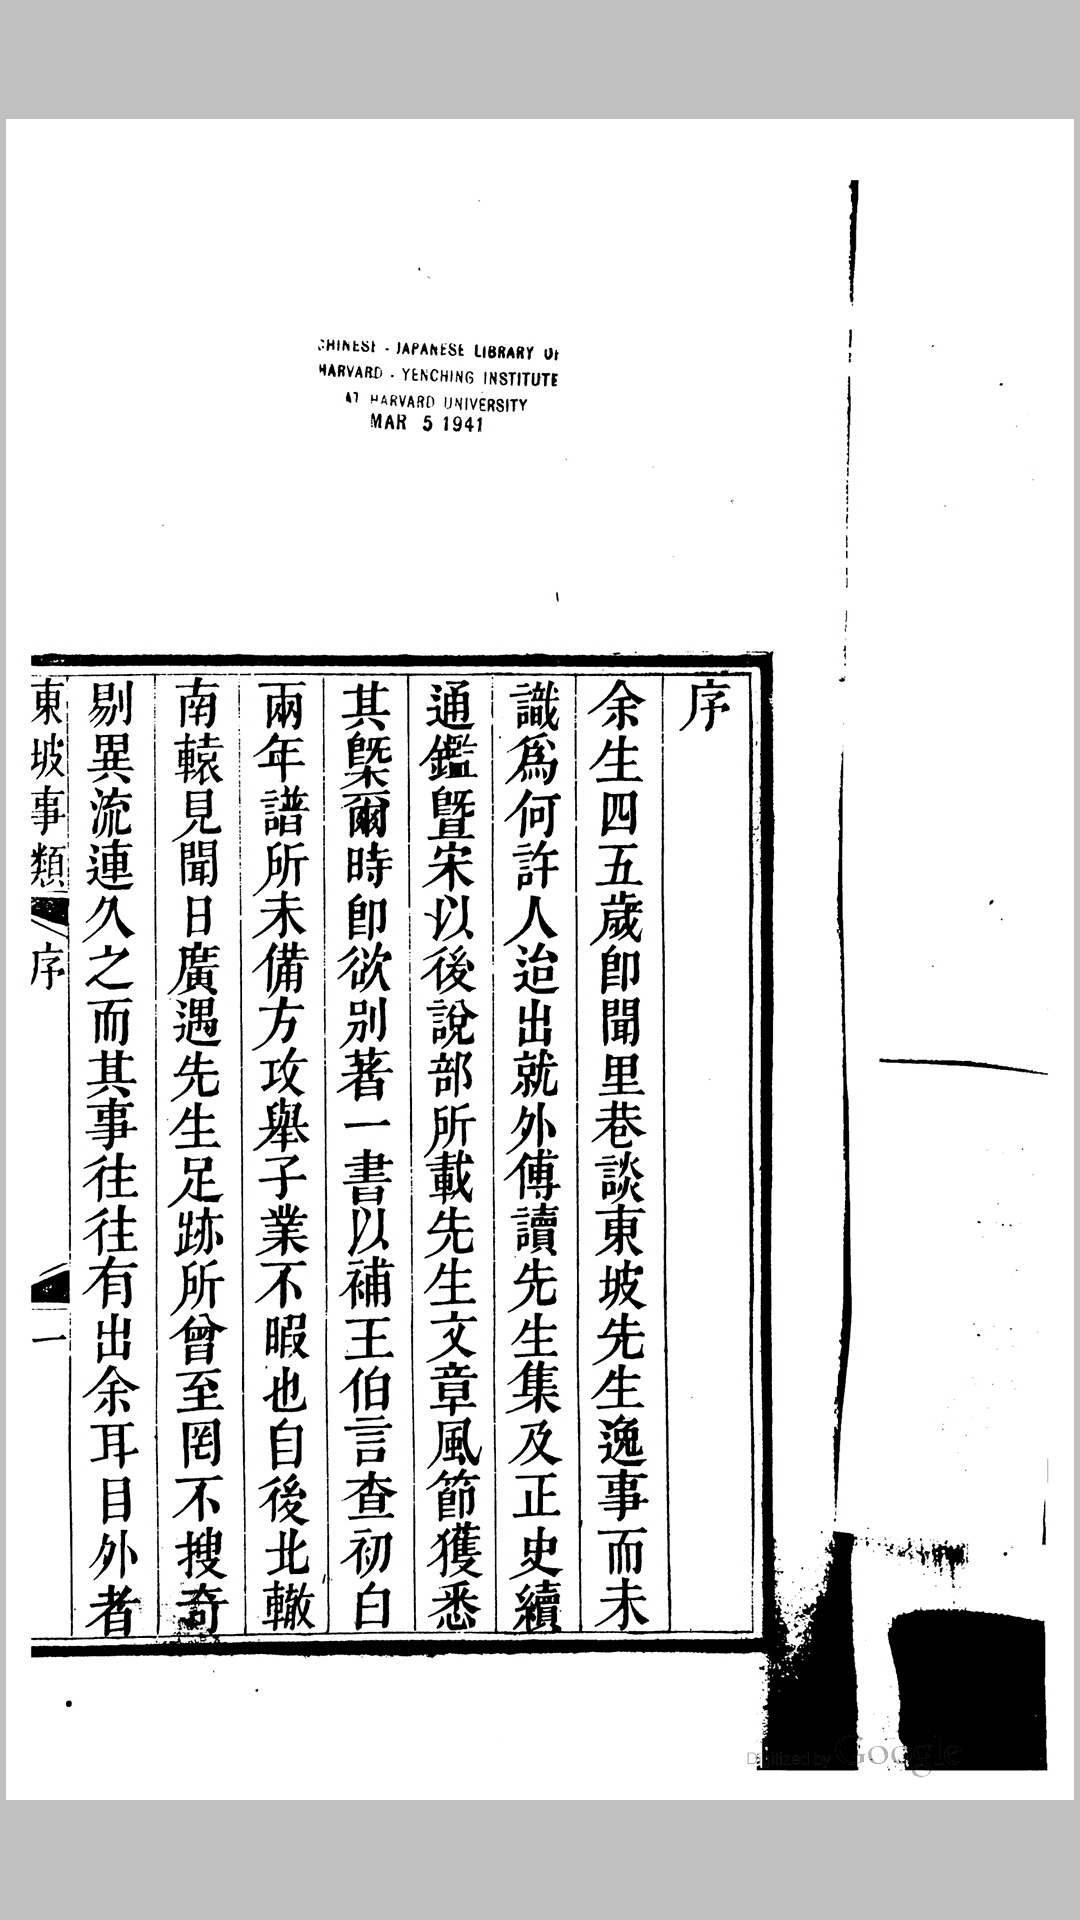 CHINESE - JAPANESE LIBRARY OF
HARVARD - YENCHING INSTITUTE
AT HARVARD UNIVERSITY
MAR 5 1941
序
余生四五歲卽聞里巷談東坡先生逸事而未
識爲何許人迨出就外傅讀先生集及正史續
通鑑曁宋以後說部所載先生文章風節獲悉
其槩爾時卽欲别著一書以補王伯言查初白
兩年譜所未備方攻舉子業不暇也自後北轍
南轅見聞日廣遇先生足跡所曾至罔不搜奇
剔異流連久之而其事往往有出余耳目外者
東坡事類 序 一
Digitized by Google